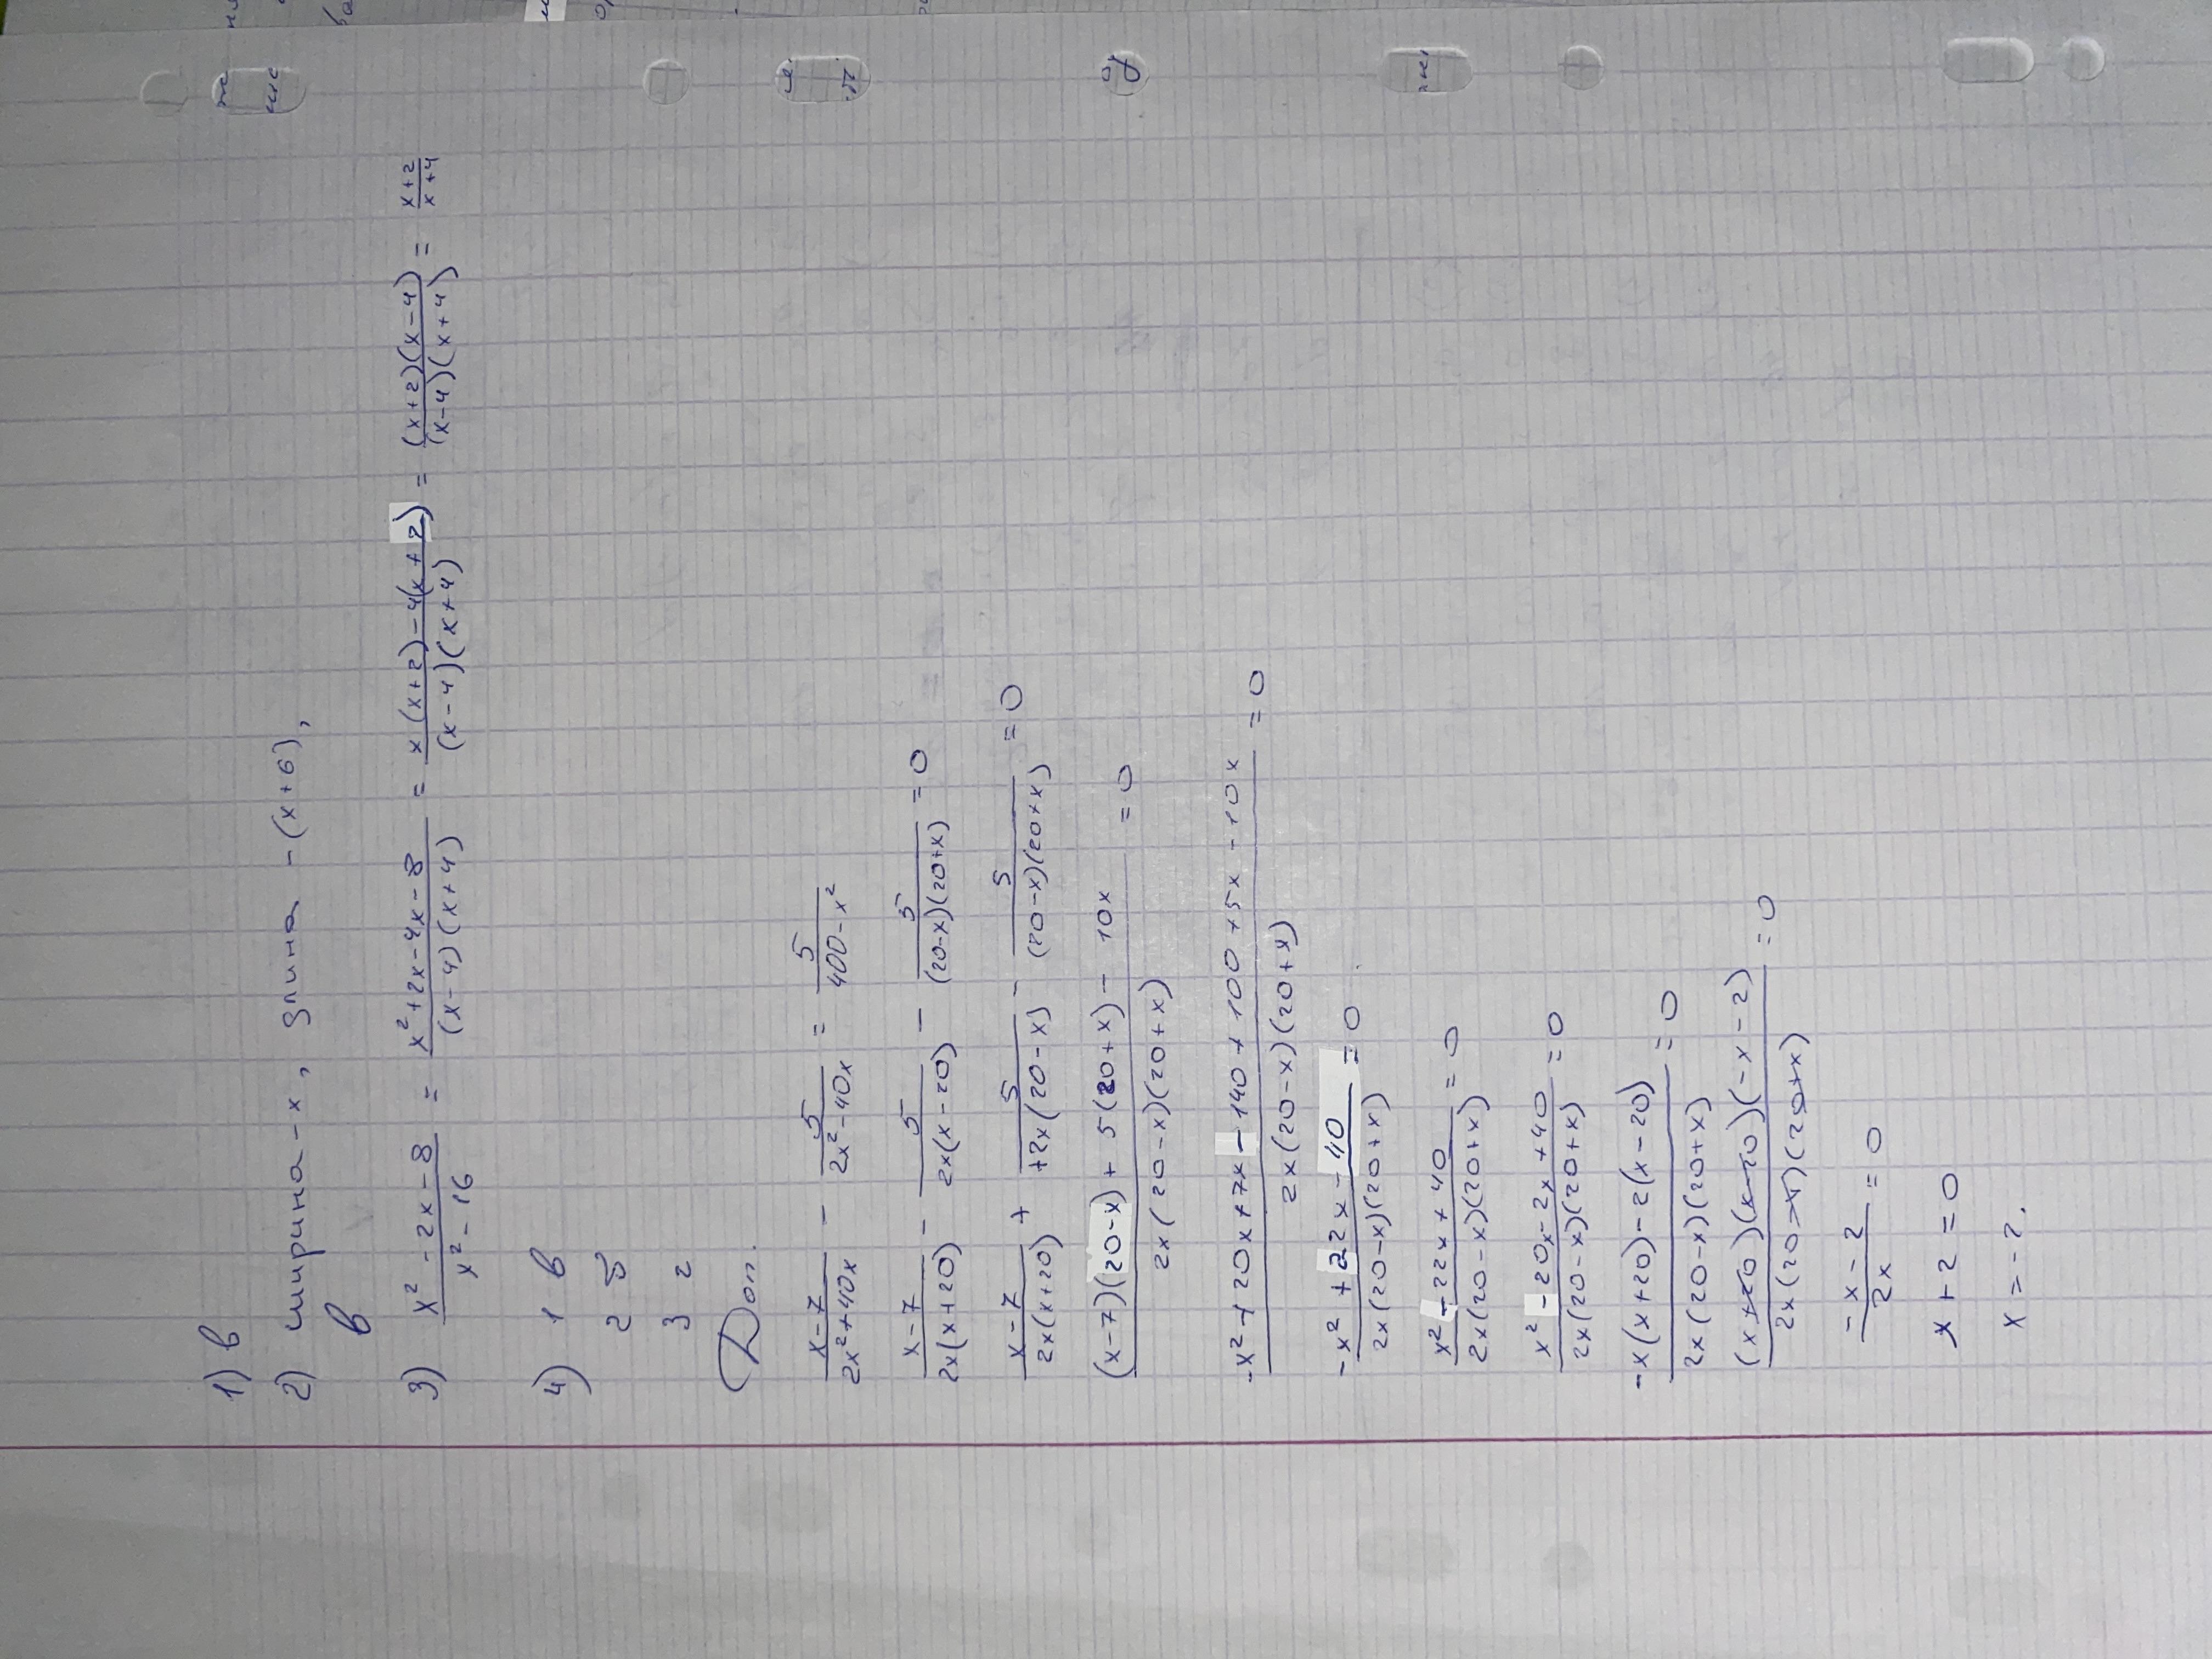 1) в
2) ширина - x, длина - (x+6),
в
3) (x² - 2x - 8)/(x² - 16) = (x² + 2x - 4x - 8)/((x-4)(x+4)) = (x(x+2) - 4(x+2))/((x-4)(x+4)) = ((x+2)(x-4))/((x-4)(x+4)) = (x+2)/(x+4)
4) 1 в
2 б
3 г
Доп.
(x-7)/(2x²+40x) - 5/(2x²-40x) = 5/(400-x²)
(x-7)/(2x(x+20)) - 5/(2x(x-20)) - 5/((20-x)(20+x)) = 0
(x-7)/(2x(x+20)) + 5/(+2x(20-x)) - 5/((20-x)(20+x)) = 0
((x-7)(20-x) + 5(20+x) - 10x)/(2x(20-x)(20+x)) = 0
(-x² + 20x + 7x - 140 + 100 + 5x - 10x)/(2x(20-x)(20+x)) = 0
(-x² + 22x - 40)/(2x(20-x)(20+x)) = 0
(x² - 22x + 40)/(2x(20-x)(20+x)) = 0
(x² - 20x - 2x + 40)/(2x(20-x)(20+x)) = 0
(-x(x+20) - 2(x-20))/(2x(20-x)(20+x)) = 0
((x+20)(x-20)(-x-2))/(2x(20-x)(20+x)) = 0
(-x-2)/(2x) = 0
x + 2 = 0
x = -2.